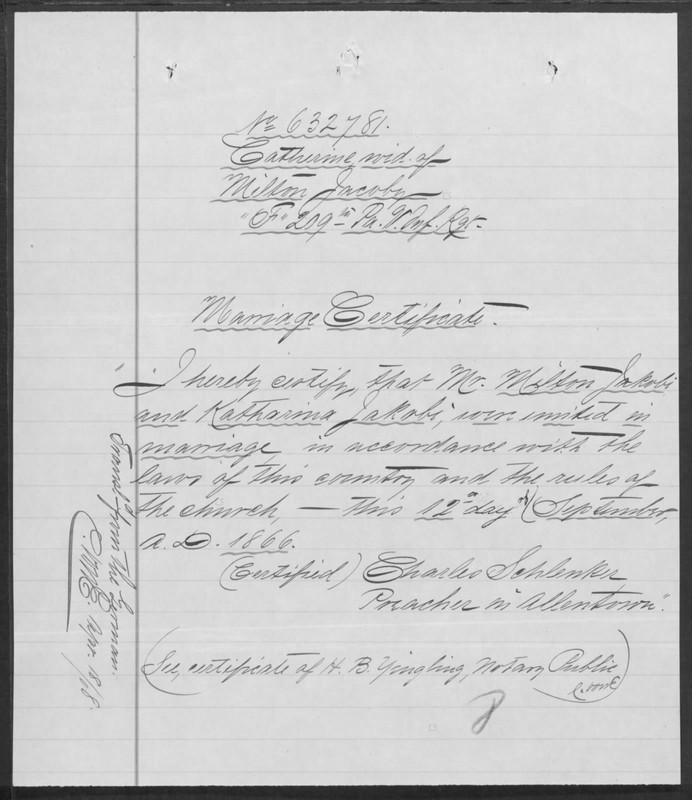 No 632781.
Catherine, wid. of
Milton Jacoby
"F" 219th Pa. V. Inf. Rgt.
Marriage Certificate.
"I hereby certify, that Mr. Milton Jakobi
and Katharina Jakobi, were united in
marriage in accordance with the
laws of this country and the rules of
the church, — this 12th day of (September,
A. D. 1866.
(Certified) Charles Schlenker,
Preacher in Allentown".
(See, certificate of H. B. Yingling, Notary Public)
Transl'd from the German.